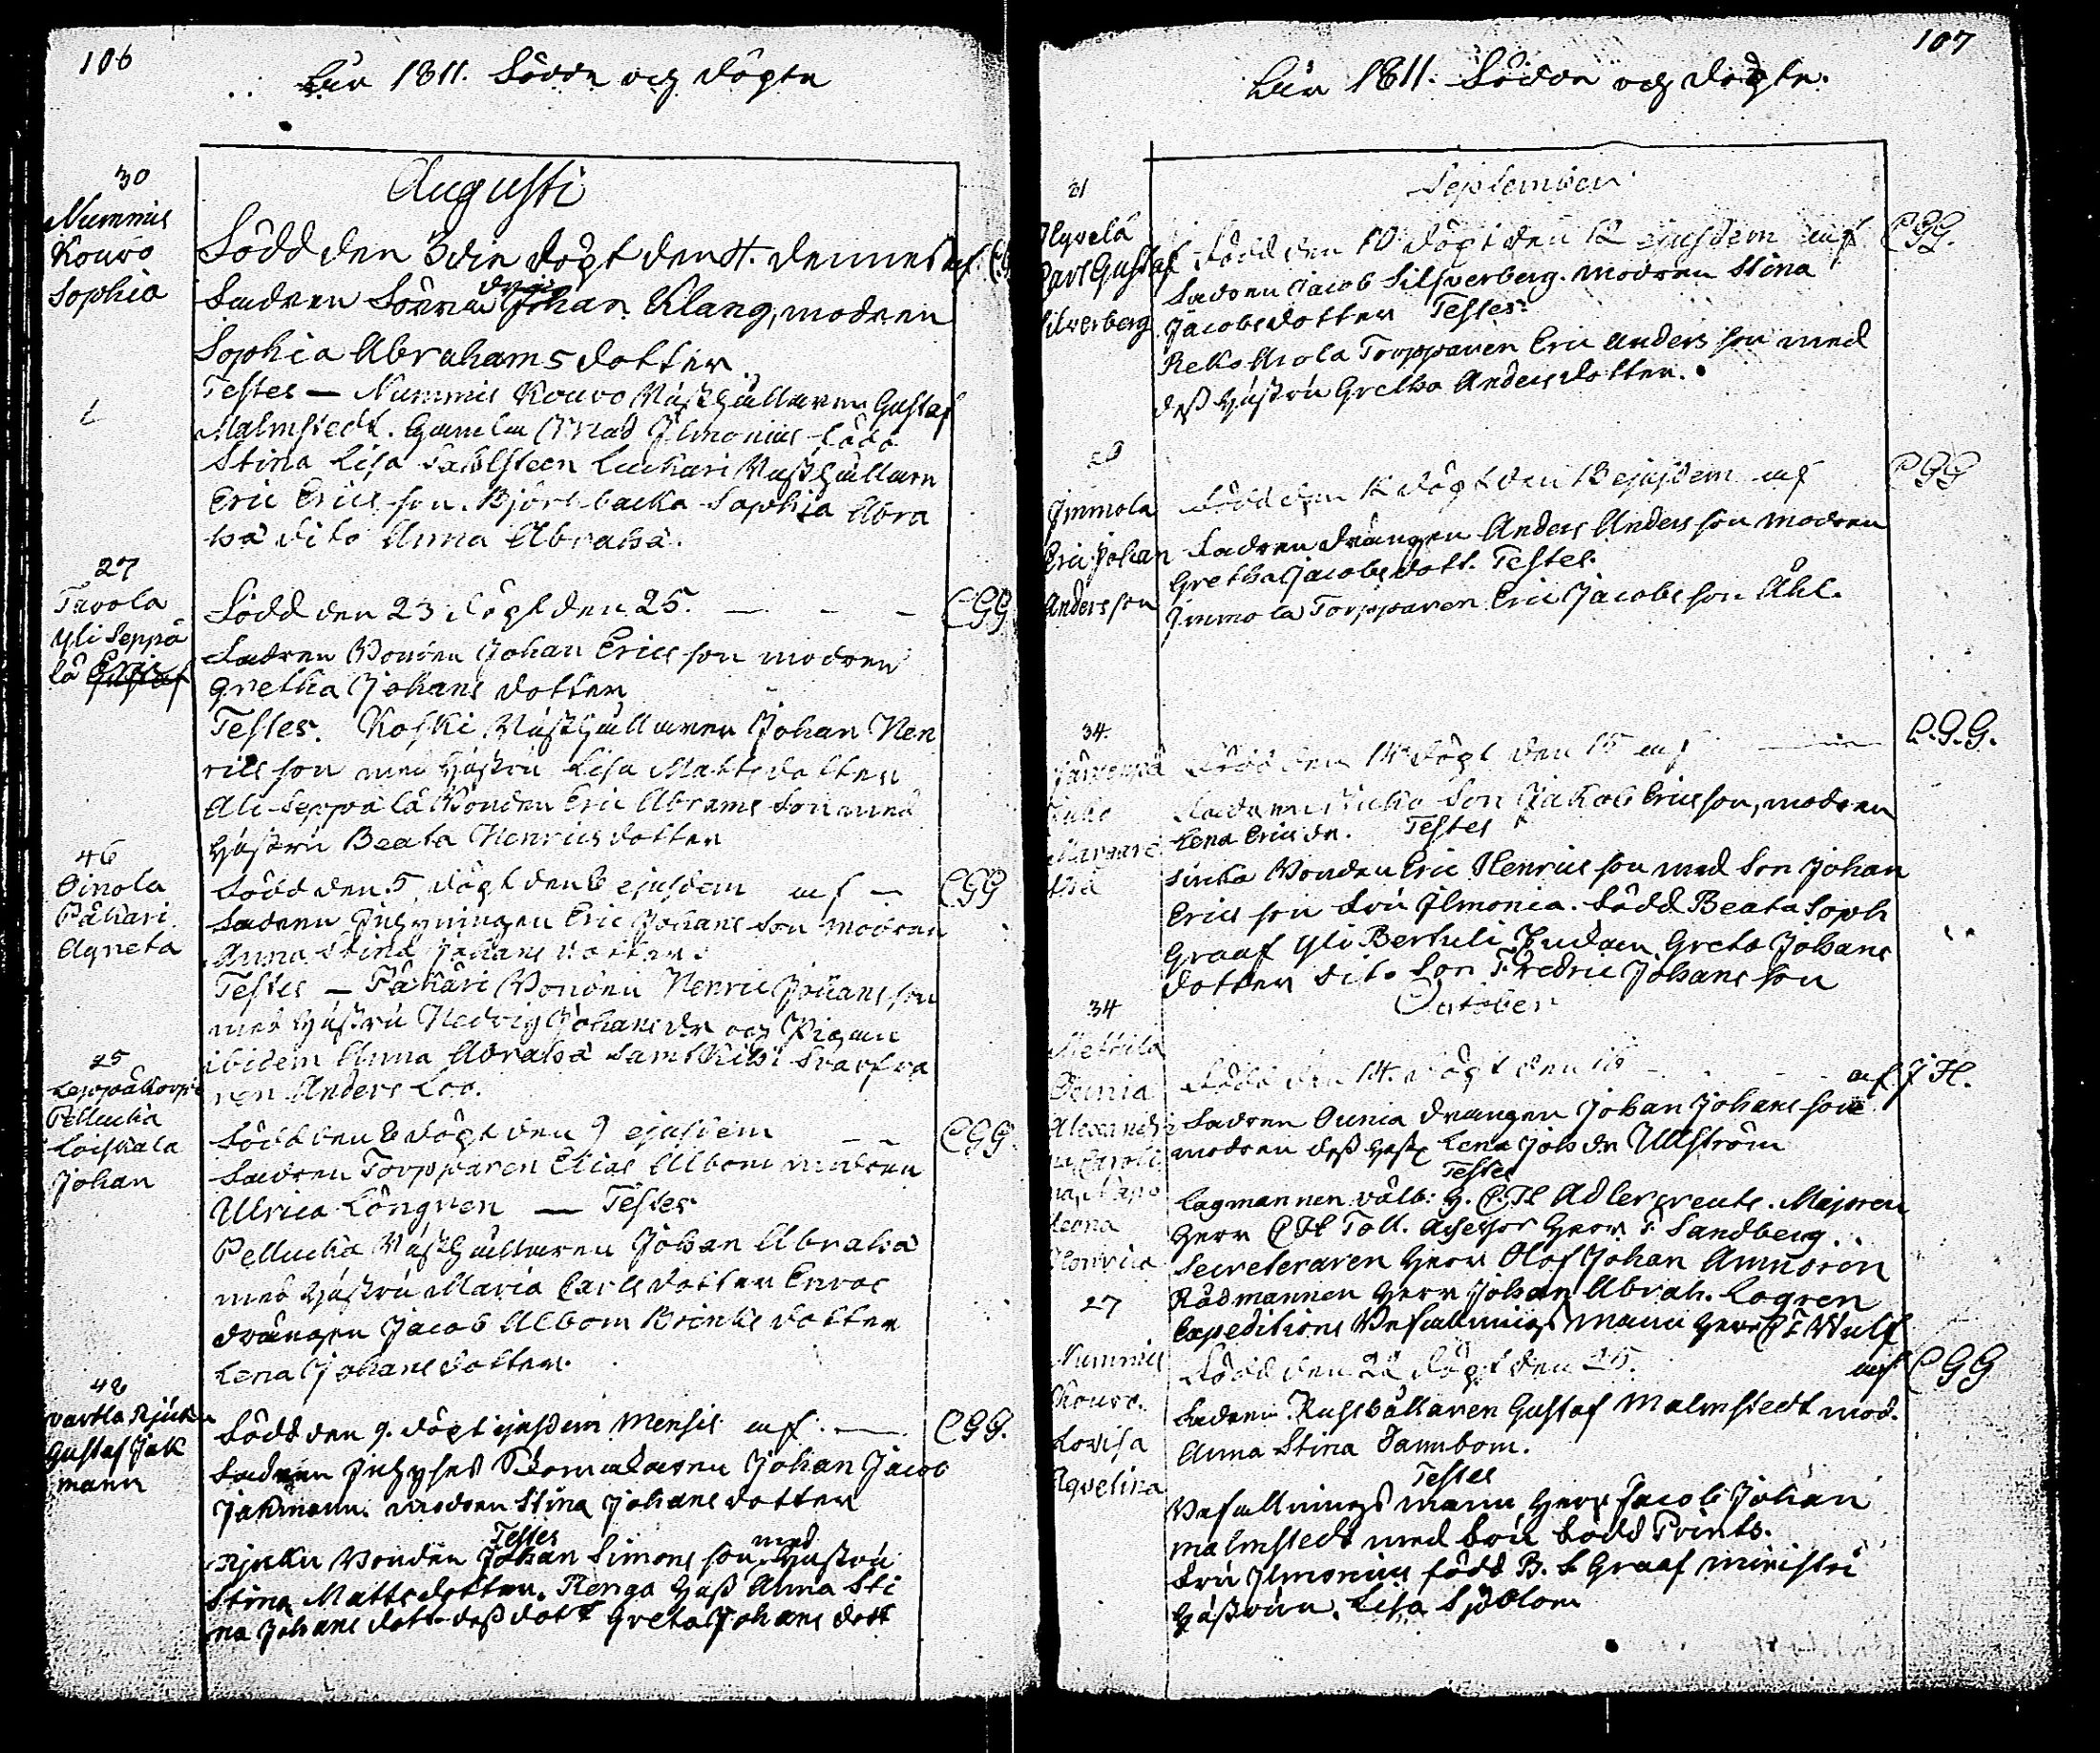 106
År 1811. Födde och döpte
30
Nummis
Kouvo
Sophia
Augusti
Född den 3die döpt den 4. dennes af
Fadren Johan Klang, modren
Sophia Abrahamsdotter
Testes — Nummis Kouvo Rusthållaren Gustaf
Malmstedt. Gamla Ilmonius född
Stina Lisa Dahlsteen Luckari Rusthållarn
Eric Ericsson. Björsbacka Sophia Abra
hā dito Anna Abrahā.
27
Tavola
Yli Seppä
lä Eric
Född den 23 döpt den 25. — - - CGG
Fadren Bonden Johan Ericsson modren
Gretha Johans dotter
Testes. Koski Rusthållaren Johan Hen
ricsson med hustru Lisa Mattsdotter
Ali-Seppälä Bonden Eric Abramsson med
hustru Beata Henricsdotter
46
Oinola
Päkäri
Agneta
Född den 5 döpt den 6 ejusdem af — CGG
Fadren Inhysningen Eric Johansson modren
Anna Stina Johans dotter
Testes — Päkäri Bonden Henric Johansson
med hustru Hedvig Johansdr och Pigan
ibidem Anna Abrahā samt
ren Anders Loo.
25
Leppäkorpi
Pellucka
Loiskala
Johan
Född den 6 döpt den 9 ejusdem - - CGG.
Fadren Torpparen Elias Albom modren
Ulrica Löngren — Testes
Pellucka Rusthållaren Johan Abrahā
med hustru Maria Carlsdotter
drängen Jacob Albom dotter
Lena Johansdotter.
42
vartla Njuku
Gustaf Jak
mann
Född den 9. döpt ejusdem Mensis af. — CGG.
Fadren Inhyses Skomakaren Johan Jacob
Jakmann. modren Stina Johansdotter
Testes
Njuku Bonden Johan Simonsson med Hustru
Stina Mattsdotter. Renga Hust. Anna Sti
na Johans dott. dess dott Greta Johans dott
107
År 1811. Födde och döpte.
September
31
Carl Gustaf
Silverberg
Född den 10 döpt den 12 ejusdem af CGG.
Fadren Jacob Silfverberg. modren Stina
Jacobsdotter Testes.
Torpparen Eric Andersson med
dess hustru Gretha Andersdotter.
Immola
Eric Johan
Andersson
Född den 12 döpt den 13 ejusdem af CGG
Fadren drängen Anders Andersson modren
Gretha Jacobsdott. Testes.
Immola Torpparen Eric Jacobsson Åhl.
34.
Född den 14 döpt den 15 af — C.G.G.
Fadren Son Jakob Ericsson, modren
Lena Ericsdr. Testes
Bonden Eric Henricsson med Son Johan
Ericsson Fru Ilmonia. Född Beata Soph
Graaf Yli Bertuli Gretа Johans
dotter dito Son Fredric Johansson
October
34
Mettula
Ounia
Alexandri
na Caroli
na Napo
leona
Henrica
Född den 14. döpt den af J H.
Fadren Ounia drängen Johan Johansson
modren dess hust Lena Joh dr Ullström
Testes
Lagmannen välb: H. C. H Adlercreutz. Majoren
Herr C H Toll. Assessor Herr F Sandberg.
Secreteraren Herr Olof Johan Ammoren
Rådmannen Herr Johan Abrah. Logren
Expeditions Befallningsmann Herr C F Wulf
27
Nummis
Kouvo.
Lovisa
Aqvelina
Född den 22 döpt den 25. af CGG
Fadren Rusthållaren Gustaf Malmstedt mod.
Anna Stina Tammbom.
Testes
Befallningsmann Herr Jacob Johan
Malmstedt med fru född Printz.
Fru Ilmonius född B. S Graaf ministri
Hustrun. Lisa Sjöblom